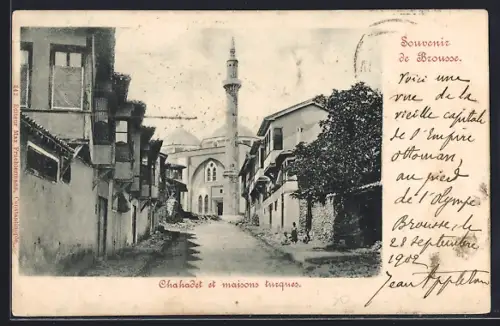 Souvenir
de Brousse.
Voici une
vue de la
vieille capitale
de l'Empire
ottoman,
au pied
de l'Olympe
Brousse, le
28 septembre
1902
Jean Appleton
Chahadet et maisons turques.
Editeur Max Fruchtermann, Constantinople.